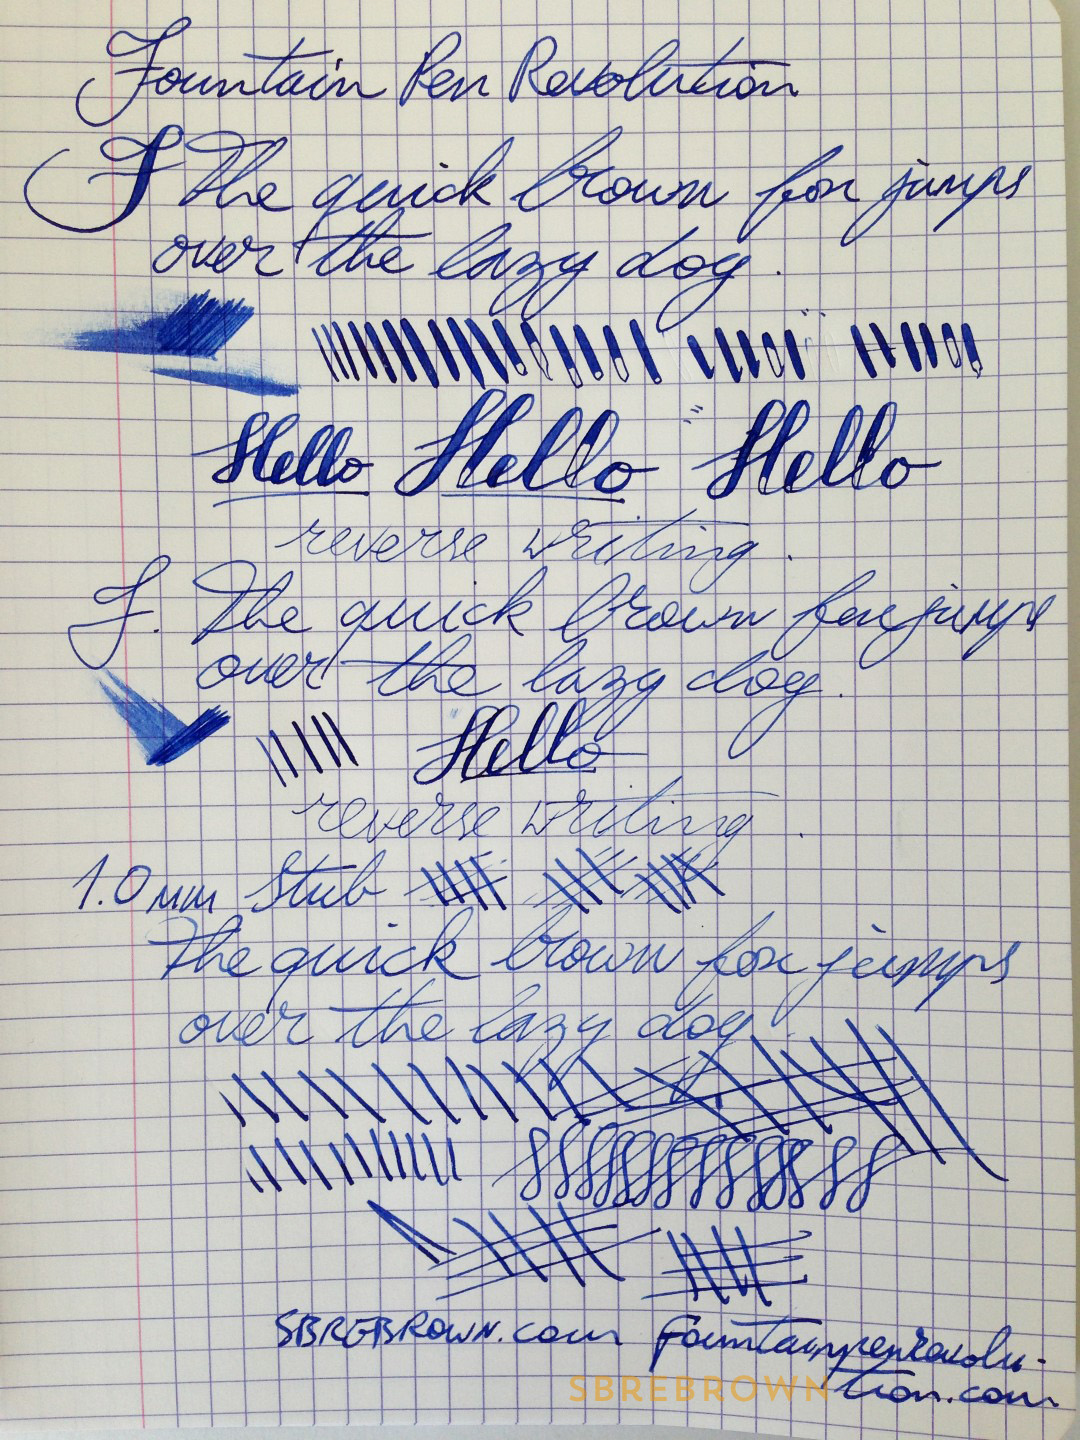 Fountain Pen Revolution
F The quick brown fox jumps
over the lazy dog.
Hello Hello Hello
reverse writing.
F. The quick brown fox jumps
over the lazy dog.
Hello
reverse writing.
1.0 mm Stub
The quick brown fox jumps
over the lazy dog.
SBREBROWN.com fountainpenrevolu-
tion.com
SBREBROWN